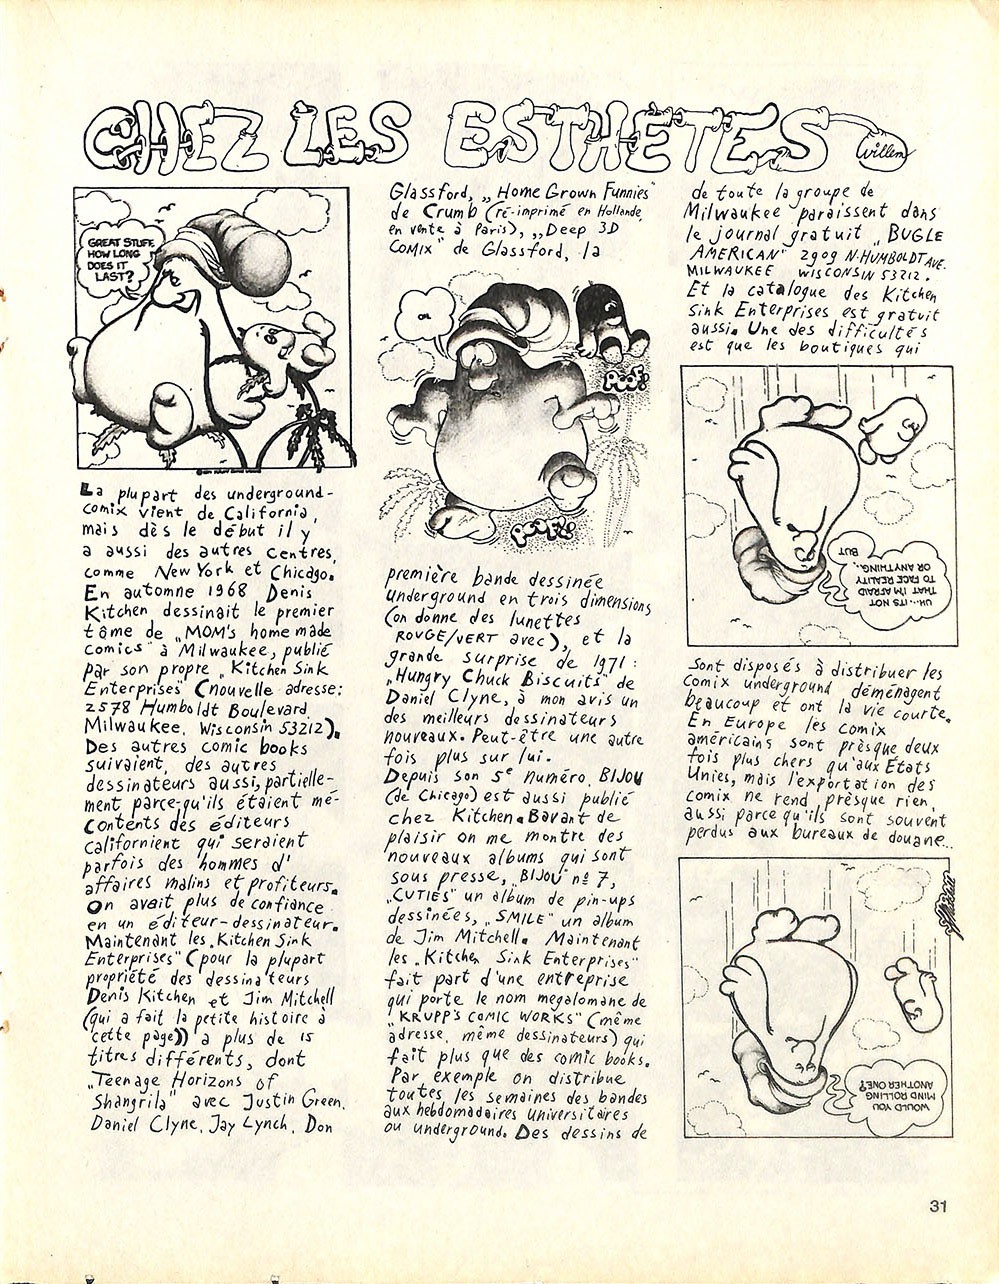 CHEZ LES ESTHETES
Willem
GREAT STUFF,
HOW LONG
DOES IT
LAST?
La plupart des underground-
comix vient de California,
mais dès le début il y
a aussi des autres centres,
comme New York et Chicago.
En automne 1968 Denis
Kitchen dessinait le premier
tôme de „MOM's home made
comics" à Milwaukee, publié
par son propre „Kitchen Sink
Enterprises" (nouvelle adresse:
2578 Humboldt Boulevard
Milwaukee, Wisconsin 53212).
Des autres comic books
suivaient, des autres
dessinateurs aussi, partielle-
ment parce-qu'ils étaient mé-
contents des éditeurs
californient qui seraient
parfois des hommes d'
affaires malins et profiteurs.
On avait plus de confiance
en un éditeur-dessinateur.
Maintenant les „Kitchen Sink
Enterprises" (pour la plupart
propriété des dessinateurs
Denis Kitchen et Jim Mitchell
(qui a fait la petite histoire à
cette page)) a plus de 15
titres différents, dont
„Teenage Horizons of
Shangrila" avec Justin Green,
Daniel Clyne, Jay Lynch, Don
Glassford, „Home Grown Funnies"
de Crumb (ré-imprimé en Hollande,
en vente à Paris), „Deep 3D
COMIX" de Glassford, la
POOF!
POOF!!
première bande dessinée
underground en trois dimensions
(on donne des lunettes
ROUGE/VERT avec), et la
grande surprise de 1971:
„Hungry Chuck Biscuits" de
Daniel Clyne, à mon avis un
des meilleurs dessinateurs
nouveaux. Peut-être une autre
fois plus sur lui.
Depuis son 5e numéro, BIJOU
(de Chicago) est aussi publié
chez Kitchen. Bavant de
plaisir on me montre des
nouveaux albums qui sont
sous presse, „BIJOU" nº 7,
„CUTIES" un album de pin-ups
dessinées, „SMILE" un album
de Jim Mitchell. Maintenant
les „Kitchen Sink Enterprises"
fait part d'une entreprise
qui porte le nom megalomane de
„KRUPP'S COMIC WORKS" (même
adresse, même dessinateurs) qui
fait plus que des comic books.
Par exemple on distribue
toutes les semaines des bandes
aux hebdomadaires universitaires
ou underground. Des dessins de
de toute la groupe de
Milwaukee paraissent dans
le journal gratuit „BUGLE
AMERICAN" 2909 N. HUMBOLDT AVE.
MILWAUKEE WISCONSIN 53212.
Et la catalogue des Kitchen
Sink Enterprises est gratuit
aussi. Une des difficultés
est que les boutiques qui
UH...ITS NOT
THAT I'M AFRAID
TO FACE REALITY
OR ANYTHING..
BUT
sont disposés à distribuer les
comix underground déménagent
beaucoup et ont la vie courte.
En Europe les comix
américains sont prèsque deux
fois plus chers qu'aux Etats
Unies, mais l'exportation des
comix ne rend prèsque rien,
aussi parce qu'ils sont souvent
perdus aux bureaux de douane...
WOULD YOU
MIND ROLLING
ANOTHER ONE?
31